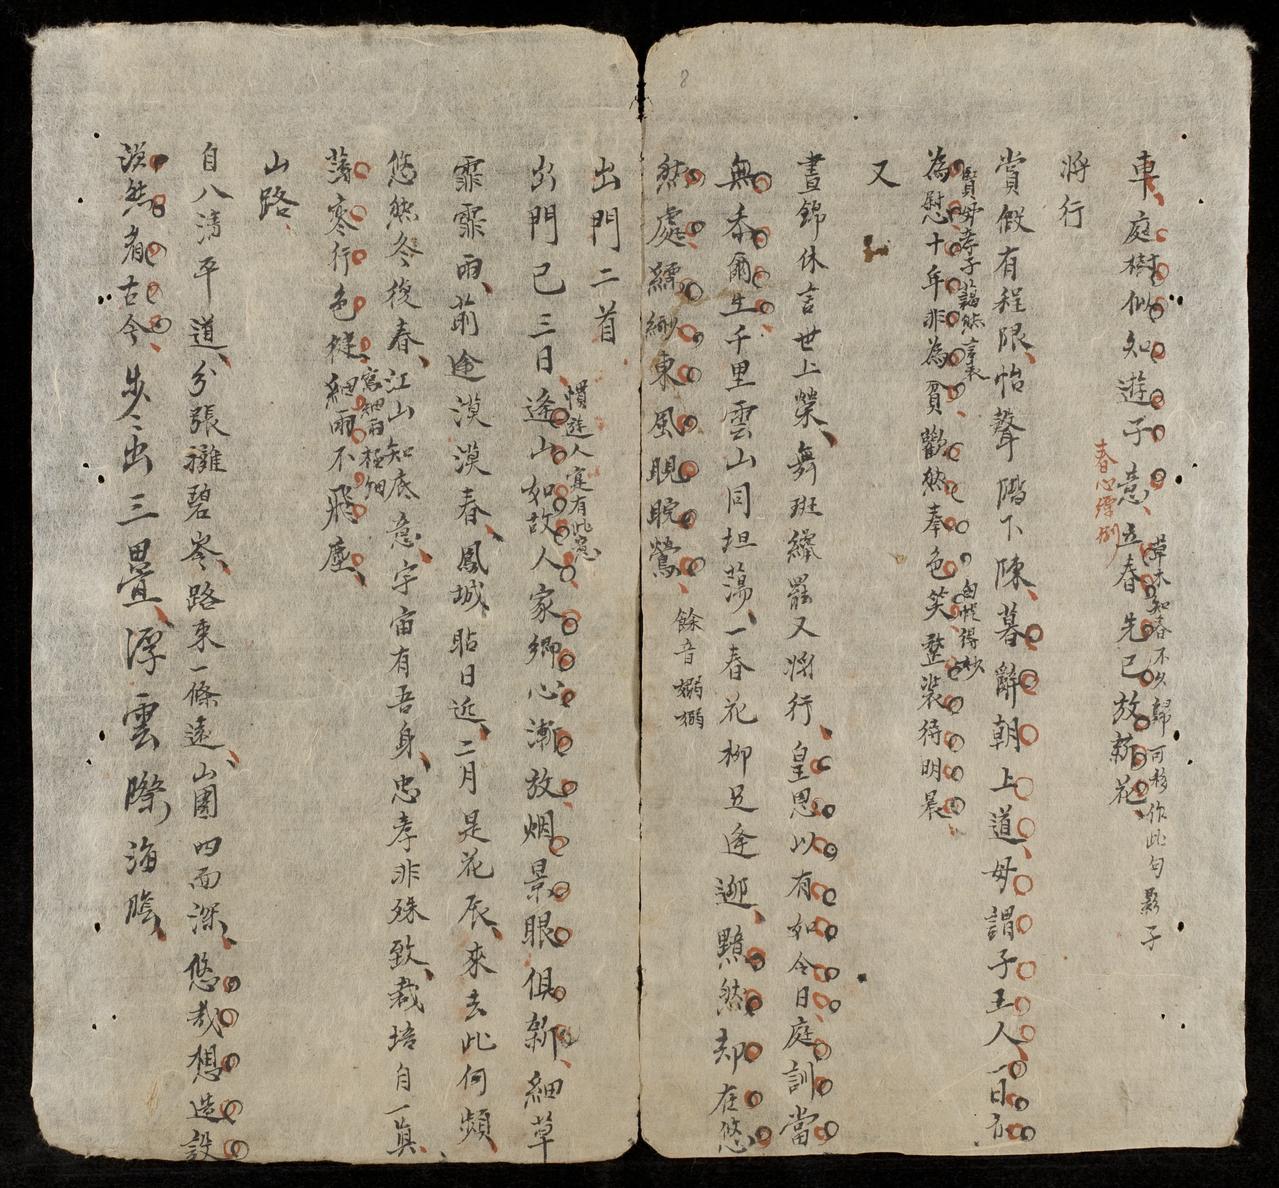 車、庭樹似知遊子意、立春先已放新花、
草木知春不久歸可移作此句影子
春心繹捌
將行
賞假有程限、怡聲階下陳、暮辭朝上道、母謂子王人、一日亦
賢母孝子藹然言表
為慰十年非為貧、歡然奉色笑、整裝待明晨、
匆忙得妙
又
晝錦休言世上榮、舞班纔罷又將行、皇恩以有如今日、庭訓當
無忝爾生、千里雲山同坦蕩、一春花柳足逢迎、黯然却在悠
然處、縹緲東風睍睆鶯、
餘音嫋嫋
出門二首
出門已三日、逢山如故人、家鄉心漸放、烟景眼俱新、細草
慣遊人寔有此意
霏霏雨、前途漠漠春、鳳城貼日近、二月是花辰、來去此何頻、
悠然冬後春、江山知底意、宇宙有吾身、忠孝非殊致、栽培自一真、
薄寒行色從、細雨不飛塵、
寫細雨極細
山路
自入清平道、分張擁碧岑、路束一條遠、山圍四面深、悠哉想造設
淡然看古今、步步出三疊、浮雲際海陰、